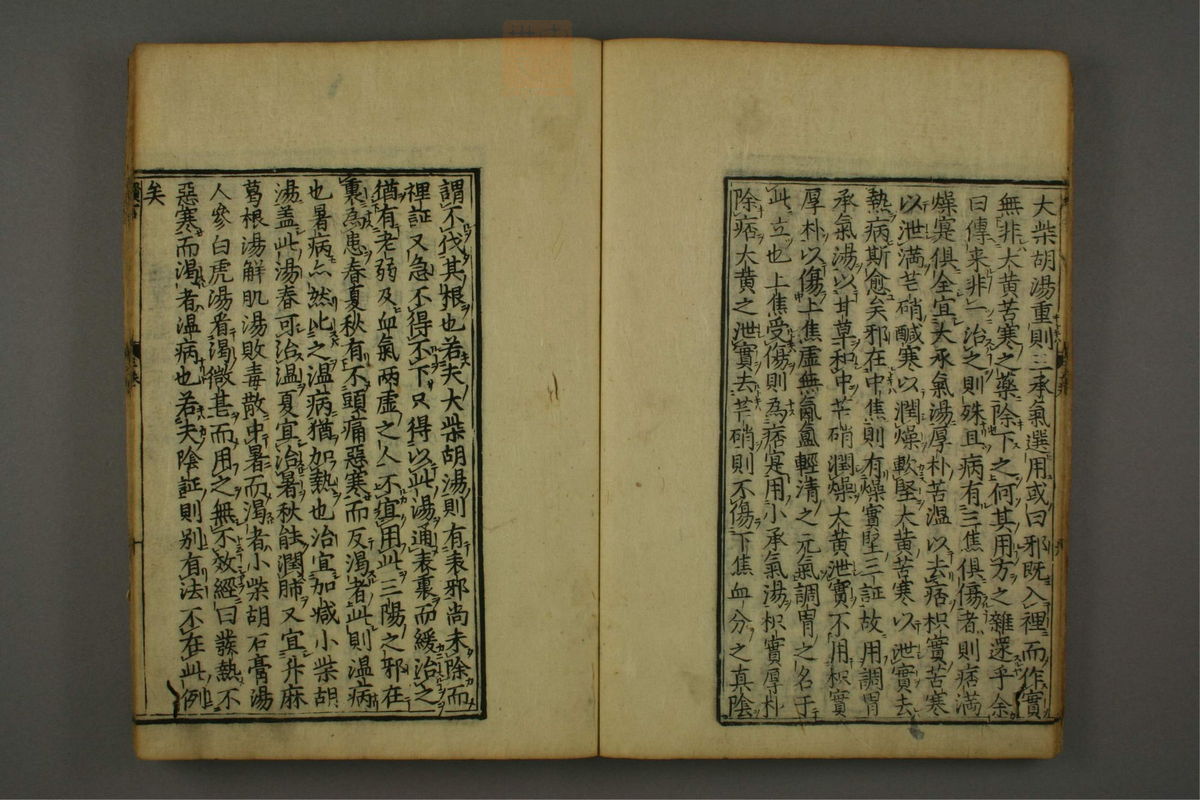 大柴胡湯重則三承氣選用或曰邪既入裡而作實
無非大黃苦寒之藥除下之何其用方之雜還乎余
曰傳來非一治之則殊且病有三焦俱傷者則痞滿
燥寔俱全宜大承氣湯厚朴苦溫以去痞枳實苦寒
以泄滿芒硝醎寒以潤燥軟堅大黃苦寒以泄實去
熱病斯愈矣邪在中焦則有燥實堅三証故用調胃
承氣湯以甘草和中芒硝潤燥大黃泄實不用枳實
厚朴以傷上焦虛無氤氳輕清之元氣調胃之名于
此立也上焦受傷則為痞寔用小承氣湯枳實厚朴
除痞大黃之泄實去芒硝則不傷下焦血分之真陰
謂不伐其根也若夫大柴胡湯則有表邪尚未除而
裡証又急不得不下只得以此湯通表裏而緩治之
猶有老弱及血氣兩虛之人不宜用此三陽之邪在
裏為患春夏秋有不頭痛惡寒而反渴者此則溫病
也暑病亦然此之溫病猶加熱也治宜加減小柴胡
湯盖此湯春可治溫夏宜治暑秋能潤肺又宜升麻
葛根湯解肌湯敗毒散中暑而渴者小柴胡石膏湯
人參白虎湯看渴微甚而用之無不效經曰發熱不
惡寒而渴者溫病也若夫陰証則别有法不在此例
矣